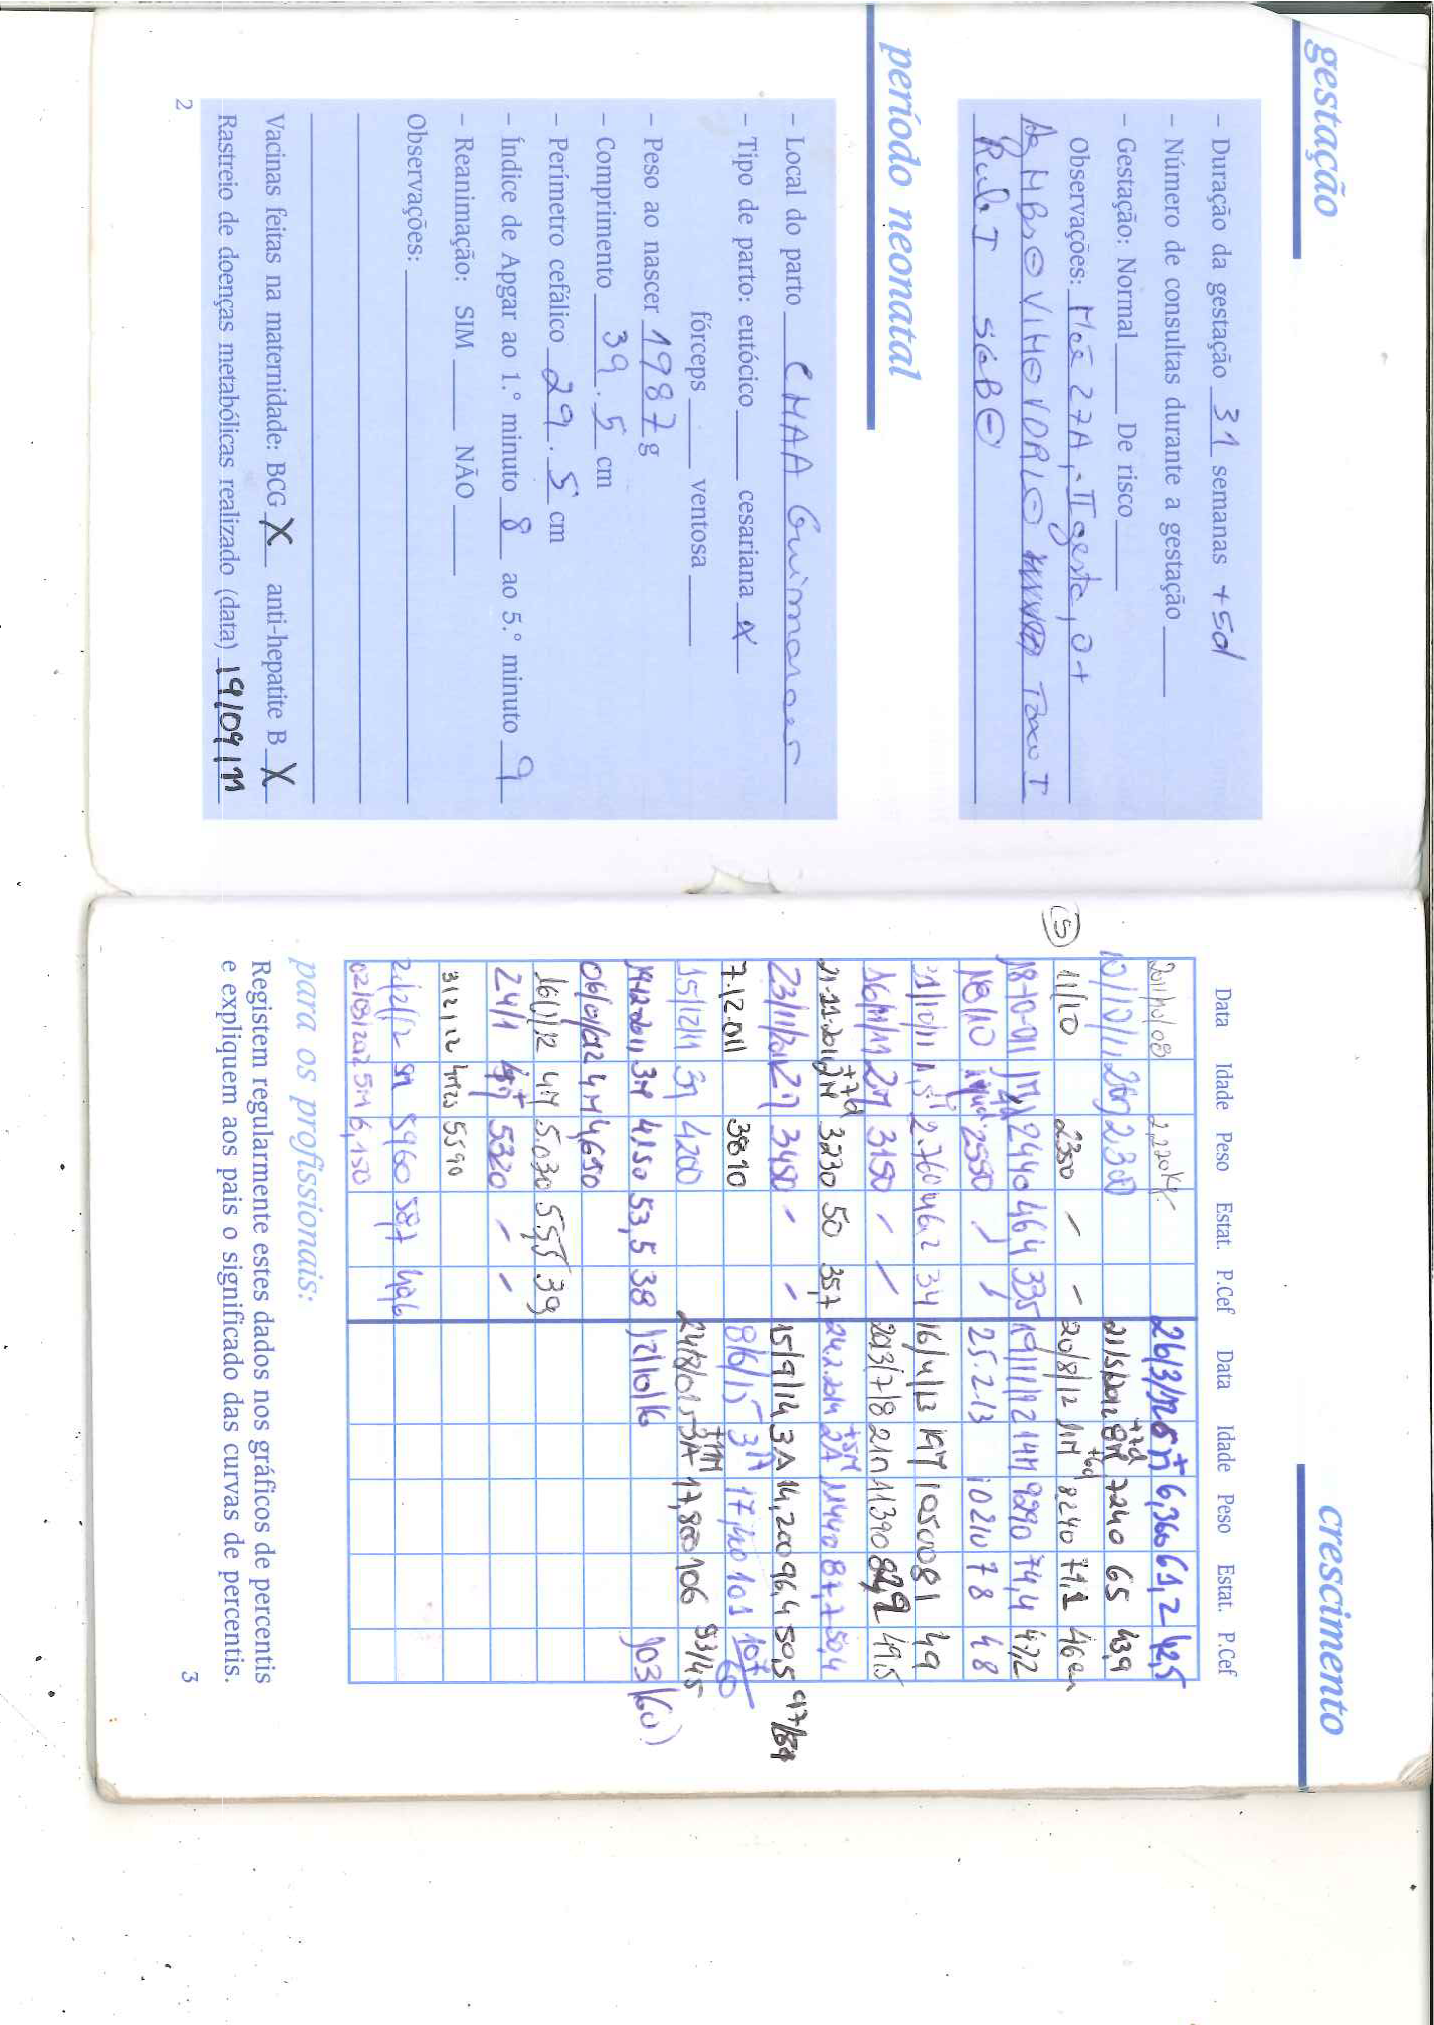 gestação
– Duração da gestação 31 semanas +5d
– Número de consultas durante a gestação
– Gestação: Normal De risco
Observações: Mãe 27A, II gesta, O+
Ag HBs ⊖ VIH ⊖ VDRL ⊖ Toxo I
Rub I SGB ⊖
período neonatal
– Local do parto CHAA Guimarães
– Tipo de parto: eutócico cesariana X
fórceps ventosa
– Peso ao nascer 1987 g
– Comprimento 39.5 cm
– Perímetro cefálico 29.5 cm
– Índice de Apgar ao 1.º minuto 8 ao 5.º minuto 9
– Reanimação: SIM NÃO
Observações:
Vacinas feitas na maternidade: BCG X anti-hepatite B X
Rastreio de doenças metabólicas realizado (data) 19/09/11
2
crescimento
Data Idade Peso Estat. P.Cef Data Idade Peso Estat. P.Cef
2011/10/08 2,220Kg 26/3/12 6M+ 6,360 61,2 42,5
10/10/11 2300 21/5/2012 8M+7d 7240 65 43,9
(S) 11/10 2350 – – 20/8/12 11M+6d 8240 71,1 46cm
18-10-011 2440 46,4 33,5 19/11/12 14M 9290 74,4 47,2
18/10 2550 25.2.13 10210 78 48
31/10/11 2.760 46,2 34 16/4/13 19M 10500 81 49
16/11/11 2M 3150 2013/7/8 21M 11390 49,5
21.11.2011 2M+7d 3230 50 35,7 24.2.2014 2A+5M 11440 87,7 50,4
23/11/2011 2M 3450 15/9/14 3A 14,200 96,4 50,5 97/54
7.12.011 3810 8/6/15 3A 17,100 101 107/60
15/12/11 3M 4200 24/8/015 3A+11M 17,800 106 93/45
19-12-2011 3M 4150 53,5 38 12/10/16 103/60
06/01/012 4M 4,690
16/1/12 4M 5.030 55,5 39
24/1 4M+ 5320 – –
31 2 12 5590
2/2/12 5960 58,7 40,6
02/03/2012 5M 6,150
para os profissionais:
Registem regularmente estes dados nos gráficos de percentis
e expliquem aos pais o significado das curvas de percentis.
3